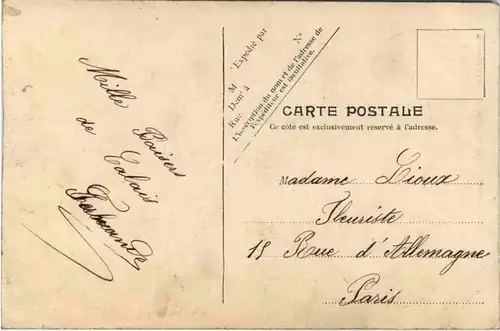 Mille Baisers
de Calais
Expédié par
M
Demt à
Rue
No
L'inscription du nom et de l'adresse de
l'expéditeur est facultative.
CARTE POSTALE
Ce côté est exclusivement réservé à l'adresse.
Madame Lioux
Fleuriste
15 Rue d'Allemagne
Paris